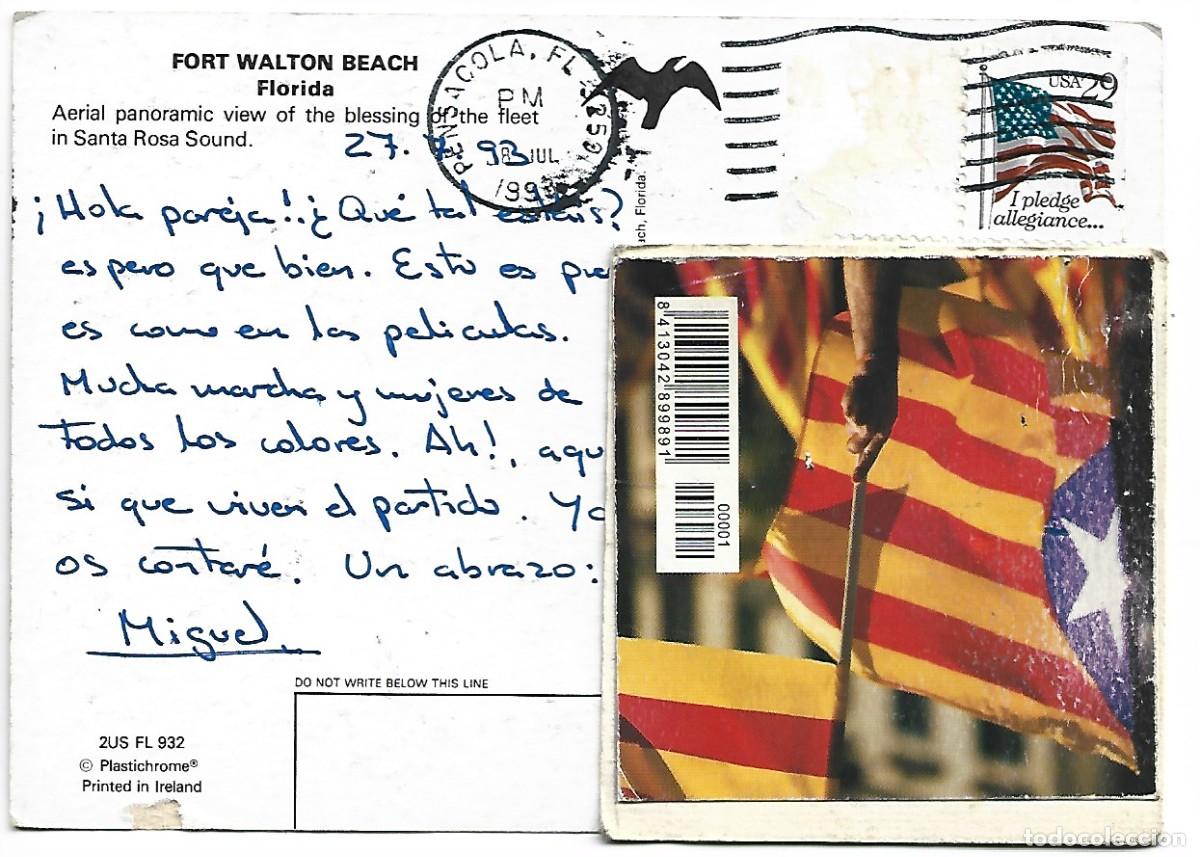 FORT WALTON BEACH
Florida
Aerial panoramic view of the blessing of the fleet
in Santa Rosa Sound.
27. 7 93
PENSACOLA, FL 325
PM
JUL
1993
USA 29
I pledge
allegiance...
ach, Florida.
¡Hola pareja!. ¿Qué tal estáis?
espero que bien. Esto es pre
es como en las películas.
Mucha marcha y mujeres de
todos los colores. Ah!, aqu
si que viven el partido. Ya
os contaré. Un abrazo:
Miguel
8 413042 899891
00001
DO NOT WRITE BELOW THIS LINE
2US FL 932
© Plastichrome®
Printed in Ireland
todocoleccion